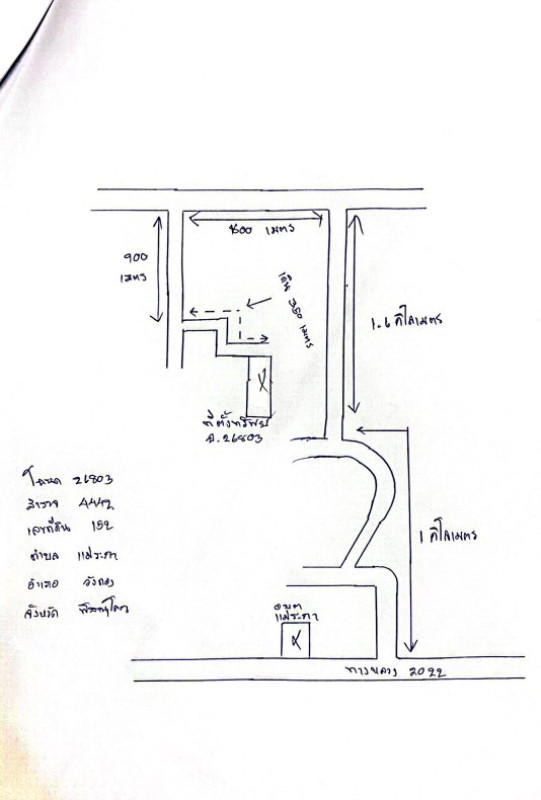 800 เมตร
900
เมตร
เดิน 350 เมตร
1.6 กิโลเมตร
ที่ตั้งทรัพย์
ฉ.26803
1 กิโลเมตร
โฉนด 26803
สำรวจ 4442
เลขที่ดิน 152
ตำบล แม่ระกา
อำเภอ วังทอง
จังหวัด พิษณุโลก
อบต
แม่ระกา
ทางหลวง 2022